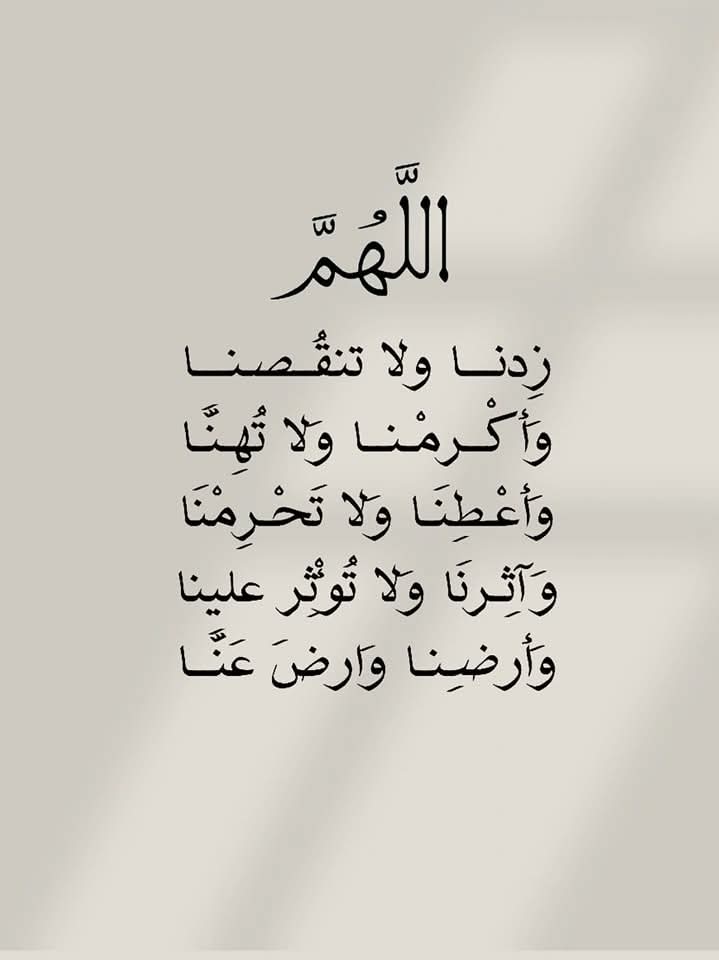 اللَّهُمَّ
زِدنـا ولا تنقُـصنـا
وَأَكْـرمْنـا وَلا تُهِنَّـا
وَأَعْطِنَـا وَلا تَحْرِمْنَا
وَآثِـرنَا وَلا تُوثْثِر علينا
وَأَرضـِنـا وَارضَ عَنَّـا